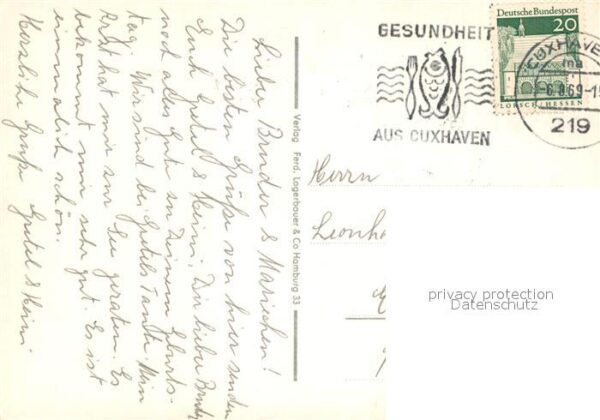 Lieber Bruder & Mariechen!
Die besten Grüße von hier senden
Euch Gretel & Heini, Dir lieber Bruder
noch alles Gute zu Deinem Geburts-
tag. Wir sind bei Gretels Tante. Mein
Arzt hat mir zur See geraten. Es
bekommt mir sehr gut. Es ist
immer schön.
Herzliche Grüße Gretel & Heini
Verlag Ferd. Lagerbauer & Co Hamburg 33
GESUNDHEIT
AUS CUXHAVEN
Deutsche Bundespost
20
LORSCH/HESSEN
CUXHAVEN
219
Herrn
Leonha
privacy protection
Datenschutz